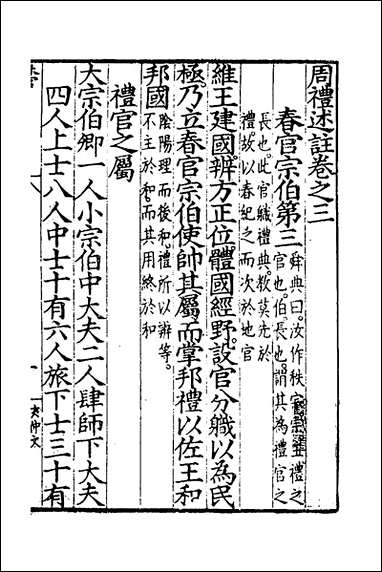 周禮述註卷之三
春官宗伯第三
舜典曰。汝作秩宗禮之
官也。伯長也。謂其為禮官之
長也。此官職禮典。敎莫先於
禮。故以春妃之而次於地官
維王建國。辨方正位。體國經野。設官分職。以為民
極。乃立春官宗伯。使帥其屬。而掌邦禮以佐王和
邦國
陰陽理而後和禮所以辨等。
不主於和。而其用終於和
禮官之屬
大宗伯卿一人小宗伯中大夫二人肆師下大夫
四人上士八人中士十有六人旅下士三十有